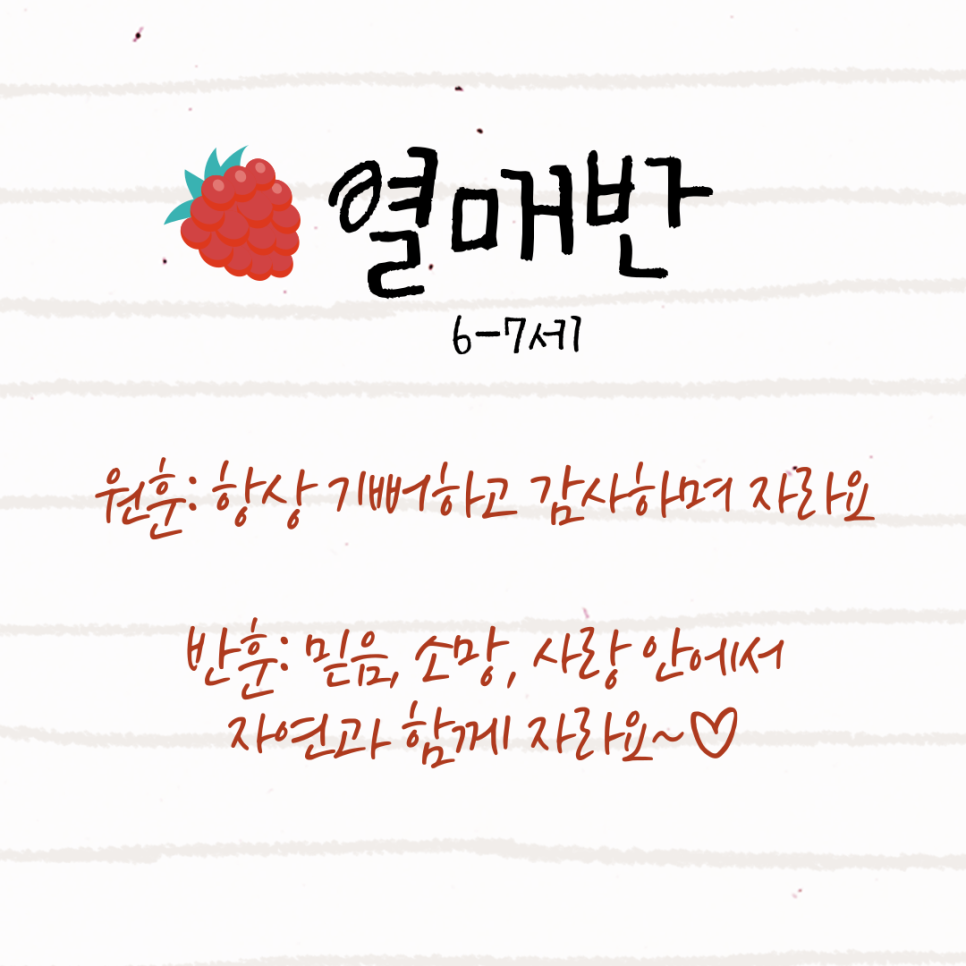 열매반
6-7세
원훈: 항상 기뻐하고 감사하며 자라요
반훈: 믿음, 소망, 사랑 안에서
자연과 함께 자라요~♡